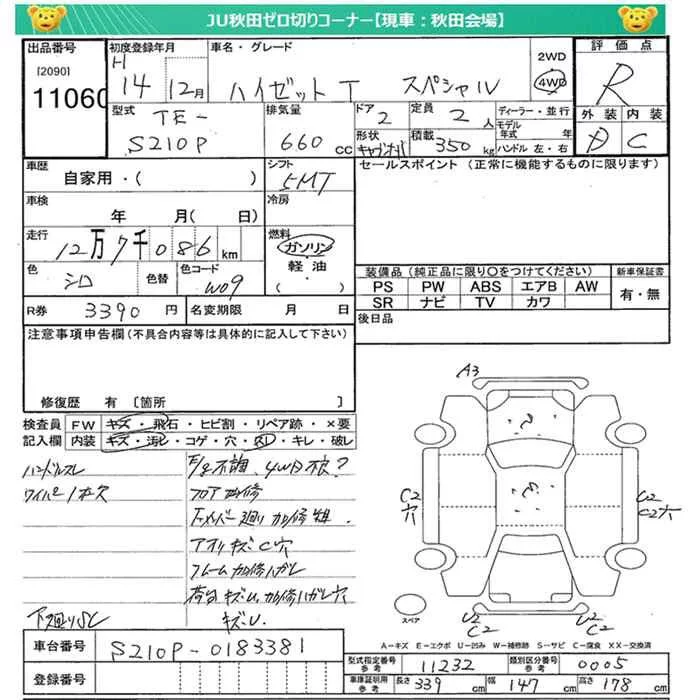 JU秋田ゼロ切りコーナー【現車：秋田会場】
出品番号 初度登録年月 車名・グレード 評価点
[2090] 11060
H 14年 12月 ハイゼットT スペシャル 2WD 4WD R
型式 TE-S210P 排気量 660cc ドア 2 定員 2人 ディーラー・並行 外装 内装
形状 積載 350kg モデル年式 年 D C
ハンドル左・右
車歴 自家用・( ) シフト 5MT セールスポイント (正常に機能するものに限ります)
車検 年 月( 日) 冷房
走行 12万7千086km 燃料 ガソリン 軽油 ( )
色 シロ 色替 色コード W09
装備品(純正品に限り○をつけてください) 新車保証書
PS PW ABS エアB AW 有・無
SR ナビ TV カワ
R券 3390円 名変期限 月 日 後日品
注意事項申告欄(不具合内容等は具体的に記入して下さい)
修復歴 有 [箇所 ]
検査員 FW キズ・飛石・ヒビ割・リペア跡・×要
記入欄 内装 キズ・汚レ・コゲ・穴・スレ・キレ・破レ
ハンドルスレ
ワイパー1本欠
下廻りSC
E/g不調、4WD不良?
フロア加修
下メンバー廻り加修
アオリキズC穴
フレーム加修ハガレ
荷台キズU、加修ハガレ穴
キズU
A3
C2 穴
U2 C2穴
U2 C2
U2 C2
スペア
A－キズ E－エクボ U－凹み W－補修跡 S－サビ C－腐食 XX－交換済
車台番号 S210P-0183381
登録番号
型式指定番号 参考 11232 類別区分番号 参考 0005
車庫証明用 参考 長さ 339cm 幅 147cm 高さ 178cm